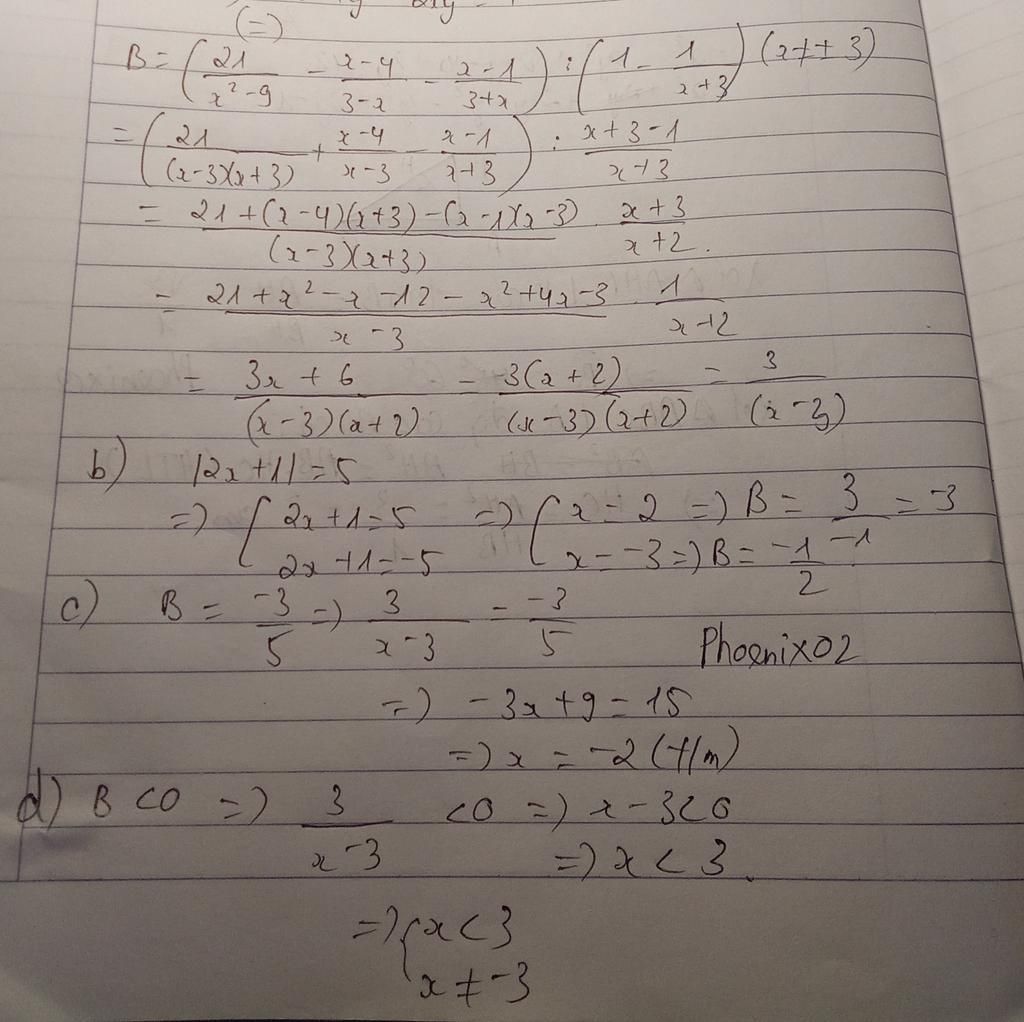 (=)
B = (21/(x²-9) - (x-4)/(3-x) - (x-1)/(3+x)) : (1 - 1/(x+3)) (x≠±3)
= (21/((x-3)(x+3)) + (x-4)/(x-3) - (x-1)/(x+3)) : (x+3-1)/(x+3)
= (21+(x-4)(x+3)-(x-1)(x-3))/((x-3)(x+3)) . (x+3)/(x+2)
= (21+x²-x-12-x²+4x-3)/(x-3) . 1/(x+2)
= (3x+6)/((x-3)(x+2)) = 3(x+2)/((x-3)(x+2)) = 3/(x-3)
b) |2x+1|=5
=> [2x+1=5 => [x=2 => B = 3/-1 = -3
2x+1=-5 x=-3 => B = -1/2
c) B = -3/5 => 3/(x-3) = -3/5
Phoenix02
=> -3x+9=15
=> x = -2 (t/m)
d) B<0 => 3/(x-3) <0 => x-3<0
=> x<3.
=> {x<3
x≠-3